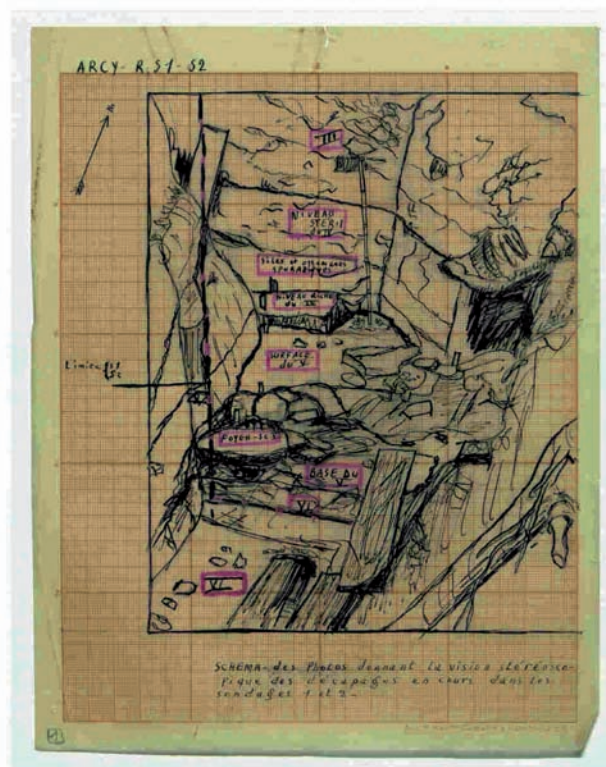 ARCY - R. 51 - 52
III
NIVEAU
STERIL
SILEX et OSSEMENTS
SPORADIQUES
NIVEAU RICHE
DU IV
SURFACE
DU V
Limite S1
S2
FOYER-SC
BASE DU
V
VI
VI
SCHEMA- des Photos donnant la vision stéréosco-
pique des décapages en cours dans les
sondages 1 et 2-